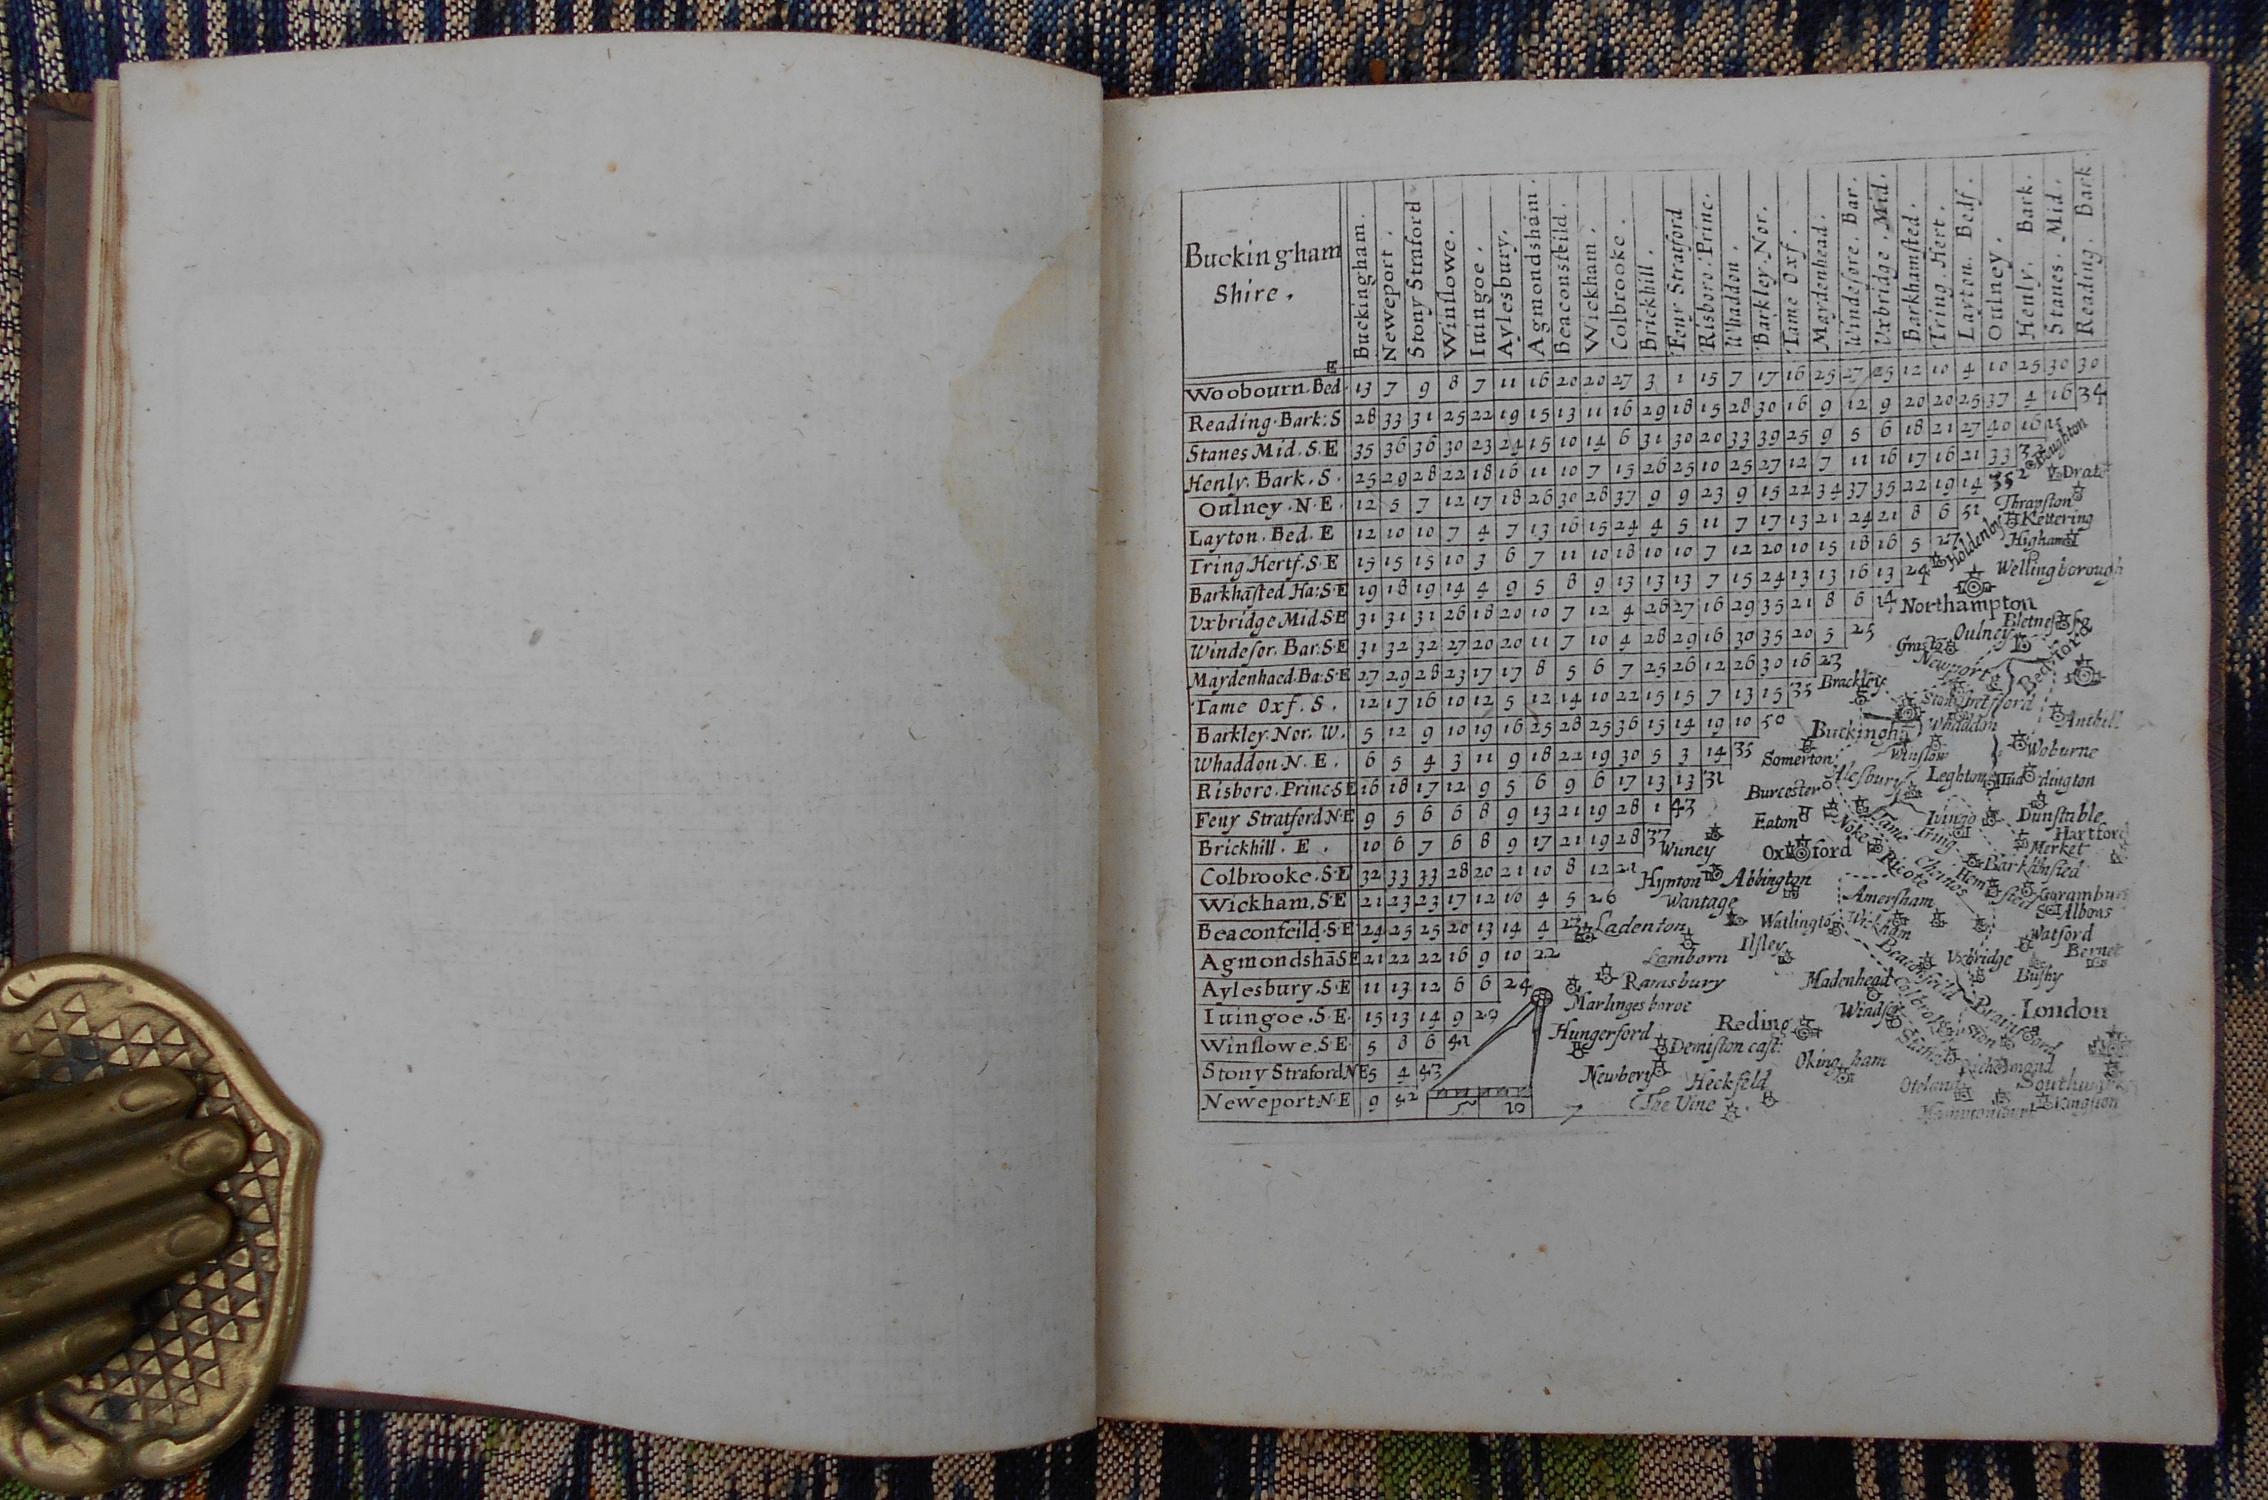 Buckingham
Shire .
Buckingham .
Neweport .
Stony Straford
Winslowe .
Iuingoe .
Aylesbury .
Agmondsham .
Beaconsfeild .
Wickham .
Colbrooke .
Brickhill .
Feny Stratford
Risboro . Princ .
Whaddon .
Barkley . Nor .
Tame Oxf .
Maydenhead .
Windesore . Bar .
Vxbridge . Mid .
Barkhamsted .
Tring . Hert .
Layton . Bedf .
Oulney .
Henly . Bark .
Stanes . Mid .
Reading . Bark .
E
Woobourn . Bed . 13 7 9 8 7 11 16 20 20 27 3 1 15 7 17 16 25 27 25 12 10 4 10 25 30 30
Reading . Bark : S 28 33 31 25 22 19 15 13 11 16 29 18 15 28 30 16 9 12 9 20 20 25 37 4 16 34
Stanes Mid . S . E 35 36 36 30 23 24 15 10 14 6 31 30 20 33 39 25 9 5 6 18 21 27 40 16 15
Henly . Bark . S . 25 29 28 22 18 16 11 10 7 15 26 25 10 25 27 12 7 11 16 17 16 21 33 32
Oulney . N . E . 12 5 7 12 17 18 26 30 28 37 9 9 23 9 15 22 34 37 35 22 19 14 35
Layton . Bed . E 12 10 10 7 4 7 13 16 15 24 4 5 11 7 17 13 21 24 21 8 6 51
Tring Hertf . S . E 15 15 15 10 3 6 7 11 10 18 10 10 7 12 20 10 15 18 16 5 27
Barkhāsted Ha : S . E 19 18 19 14 4 9 5 8 9 13 13 13 7 15 24 13 13 16 13 24
Vxbridge Mid S . E 31 31 31 26 18 20 10 7 12 4 26 27 16 29 35 21 8 6 14
Windesor . Bar : S . E 31 32 32 27 20 20 11 7 10 4 28 29 16 30 35 20 5 25
Maydenhaed . Ba : S . E 27 29 28 23 17 17 8 5 6 7 25 26 12 26 30 16 23
Tame Oxf . S . 12 17 16 10 12 5 12 14 10 22 15 15 7 13 15 35
Barkley . Nor . W . 5 12 9 10 19 16 25 28 25 36 15 14 19 10 50
Whaddon N . E . 6 5 4 3 11 9 18 22 19 30 5 3 14 35
Risboro . Princ . S E 16 18 17 12 9 5 6 9 6 17 13 13 31
Feny Stratford N . E 9 5 6 6 8 9 13 21 19 28 1 43
Brickhill . E . 10 6 7 6 8 9 17 21 19 28 37
Colbrooke . S . E 32 33 33 28 20 21 10 8 12 21
Wickham . S . E 21 23 23 17 12 10 4 5 26
Beaconfeild . S . E 24 25 25 20 13 14 4 23
Agmondshā S E 21 22 22 16 9 10 22
Aylesbury . S . E 11 13 12 6 6 24
Iuingoe . S . E . 15 13 14 9 29
Winslowe . S . E 5 8 6 41
Stony Straford N E 5 4 43
Neweport N . E 9 42
5 10
Boughton
Thrapston
Kettering
Holdenbye
Higham
Wellingborough
Northampton
Oulney
Newport
Bedford
Brackley
Stony stretford
Buckinghā
Whaddon
Anthill
Somerton
Winslow
Woburne
Alesbury
Leghton
Tud dington
Burcester
Eaton
Tame
Iuingo
Dunstable
Noke
Tring
Hartford
Merket
Oxford
Ricote
Barkhāsted
Wuney
Hynton
Abbington
Hemsted
Wantage
Amersham
S Albons
Ladenton
Watlingtō
Wickham
Watford
Ilsley
Lamborn
Beaconsfeild
Vxbridge
Ramsbury
Madenhead
Bushy
Marlingesboroe
Windsor
Colbroke
London
Hungerford
Reding
Brainford
Demiston cast :
Oking ham
Richemond
Newbery
Heckfeld
Otelands
The Vine
Hamptoncourt
Kingston